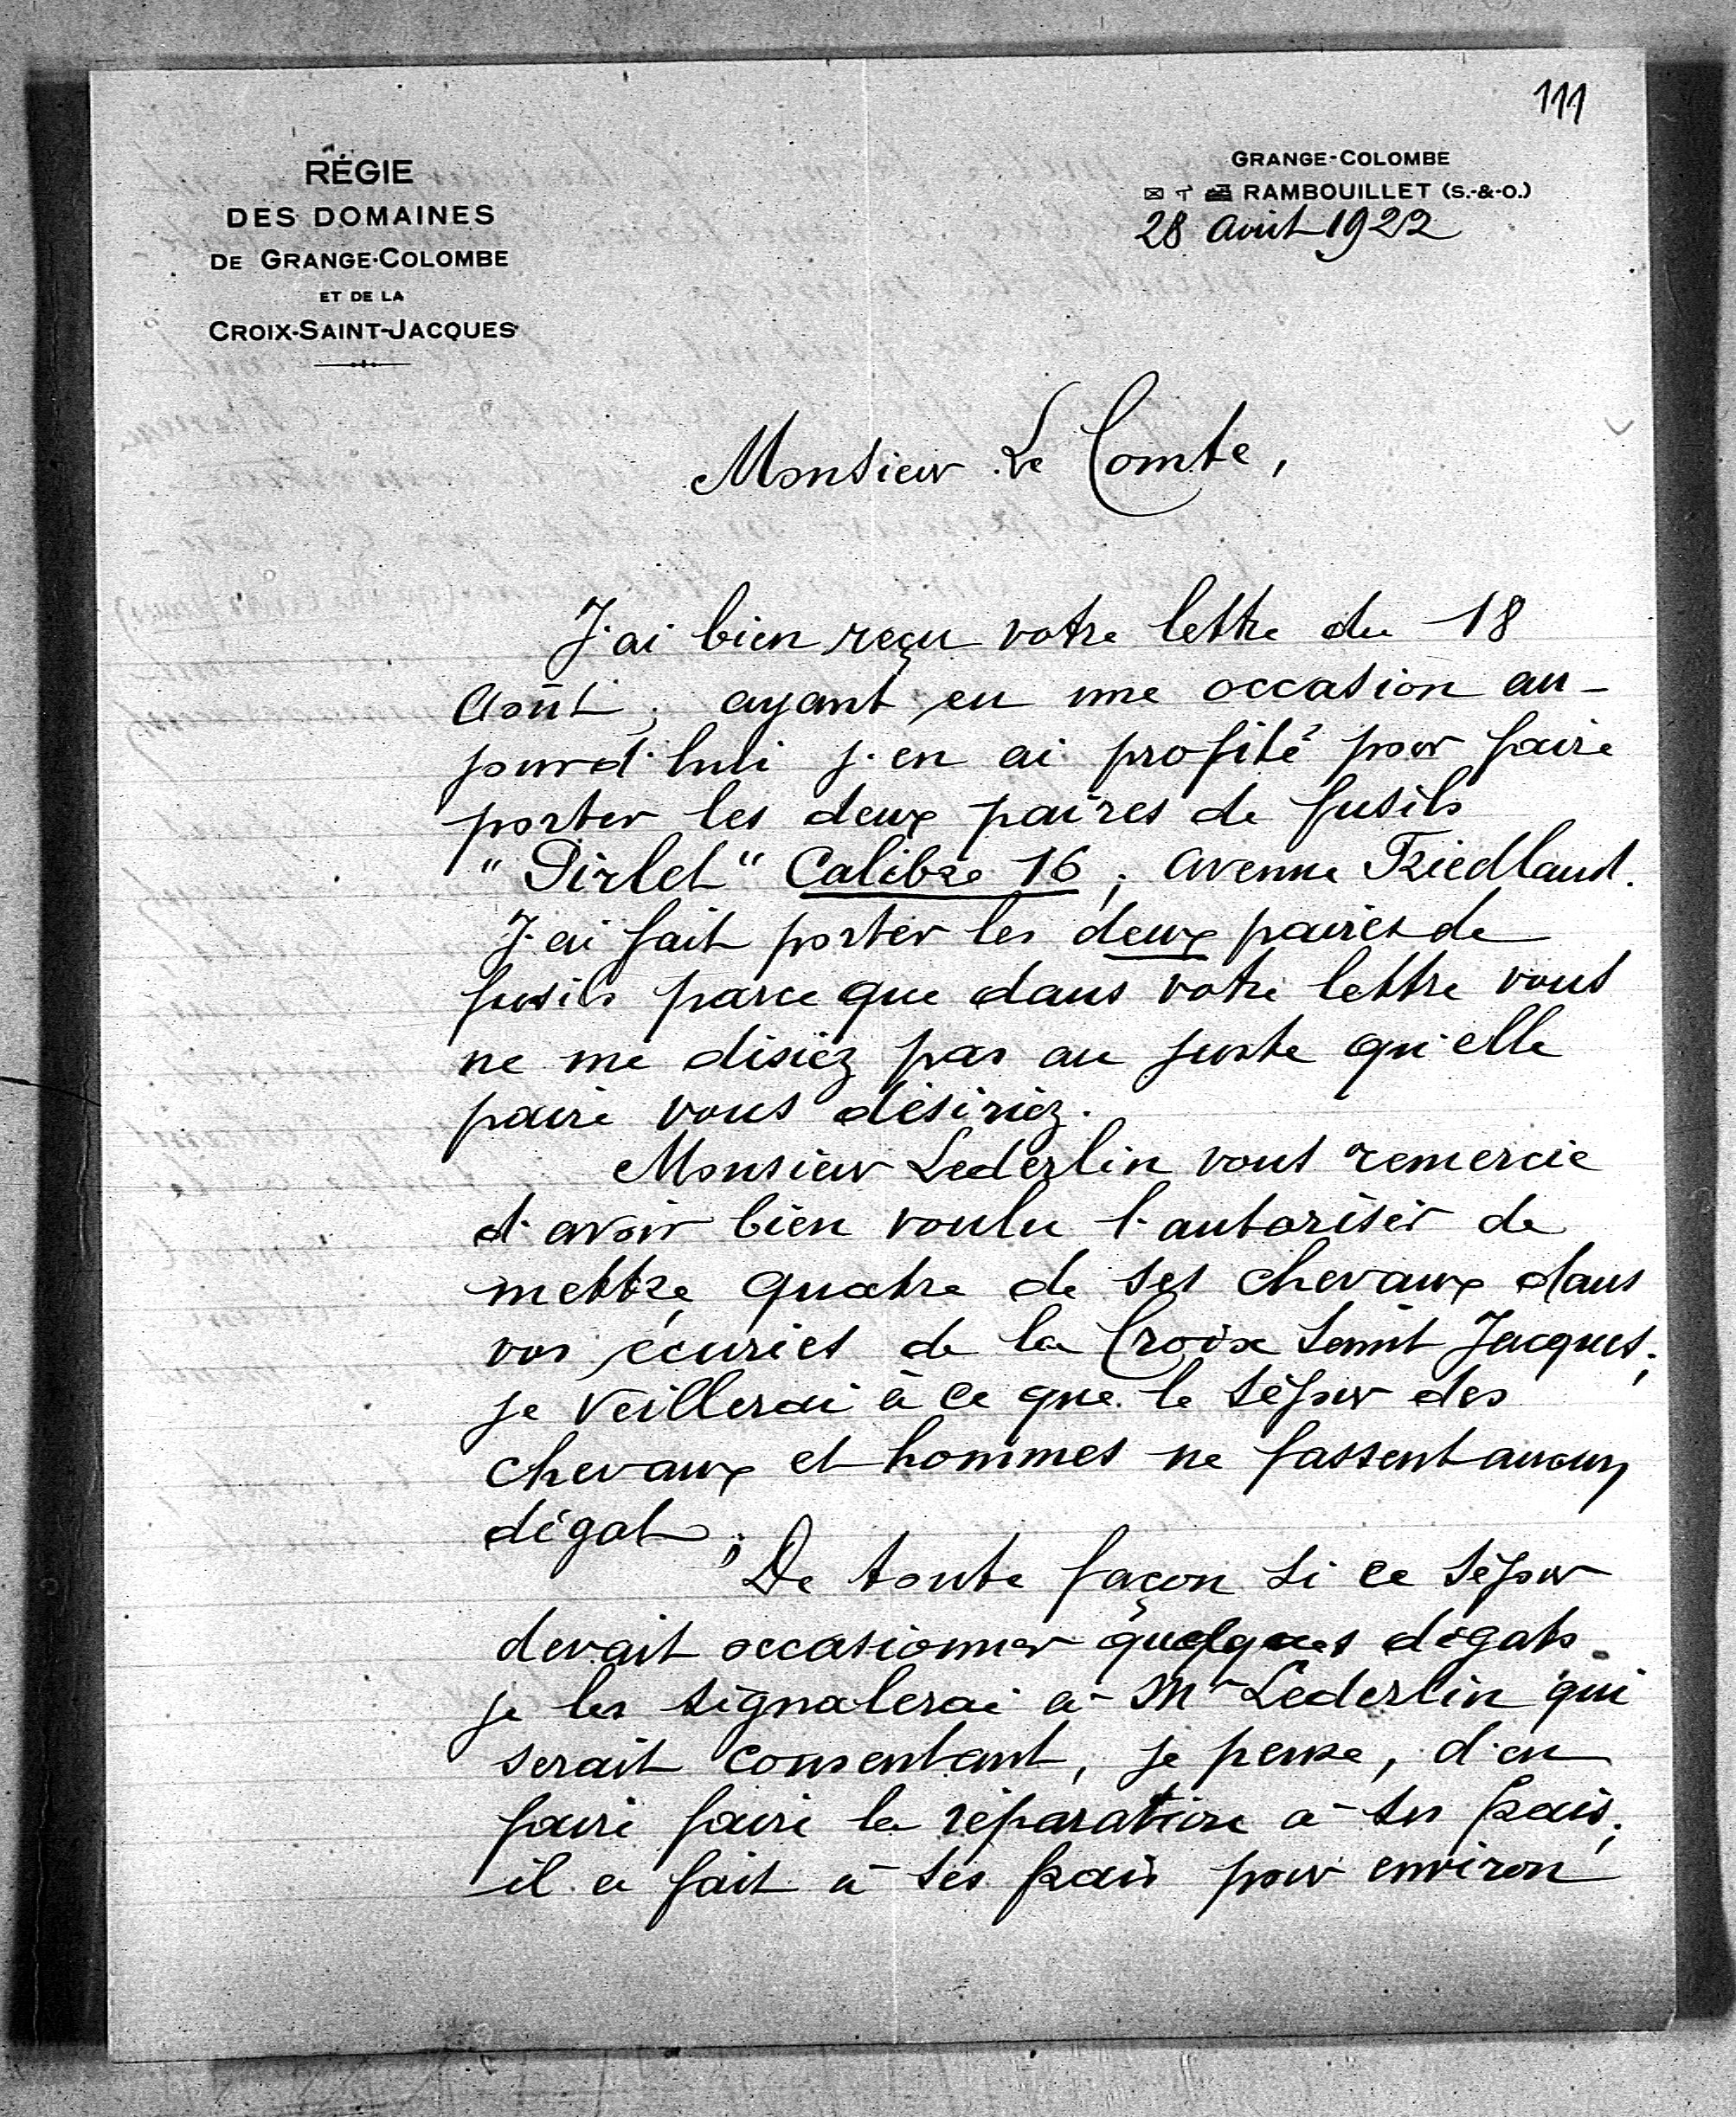 111
RÉGIE
DES DOMAINES
DE GRANGE-COLOMBE
ET DE LA
CROIX-SAINT-JACQUES
GRANGE-COLOMBE
RAMBOUILLET (S.-&-O.)
28 Août 1922
Monsieur Le Comte,
J'ai bien reçu votre lettre du 18
Août; ayant eu une occasion au-
jourd'hui j'en ai profité pour faire
porter les deux paires de fusils
"Pirlet" Calibre 16; avenue Friedland.
J'ai fait porter les deux paires de
fusils parce que dans votre lettre vous
ne me disiez pas au juste qu'elle
paire vous désiriez.
Monsieur Lederlin vous remercie
d'avoir bien voulu l'autoriser de
mettre quatre de ses chevaux dans
vos écuries de la Croix Saint Jacques;
je veillerai à ce que le séjour des
chevaux et hommes ne fassent aucun
dégat;
De toute façon si ce séjour
devait occasionner quelques dégats
je les signalerai à Mr Lederlin qui
serait consentant, je pense, d'en
faire faire la réparation à ses frais;
il a fait à ses frais pour environ